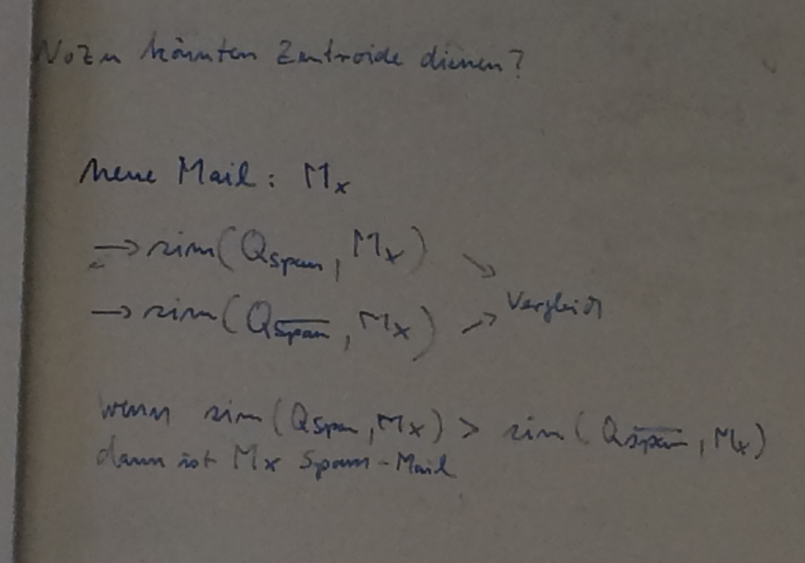 Wozu könnten Zentroide dienen?
Neue Mail: Mx
→ sim(Qspam, Mx)
→ sim(Q\overline{spam}, Mx)
Vergleich
wenn sim(Qspam, Mx) > sim(Q\overline{spam}, Mx)
dann ist Mx Spam-Mail